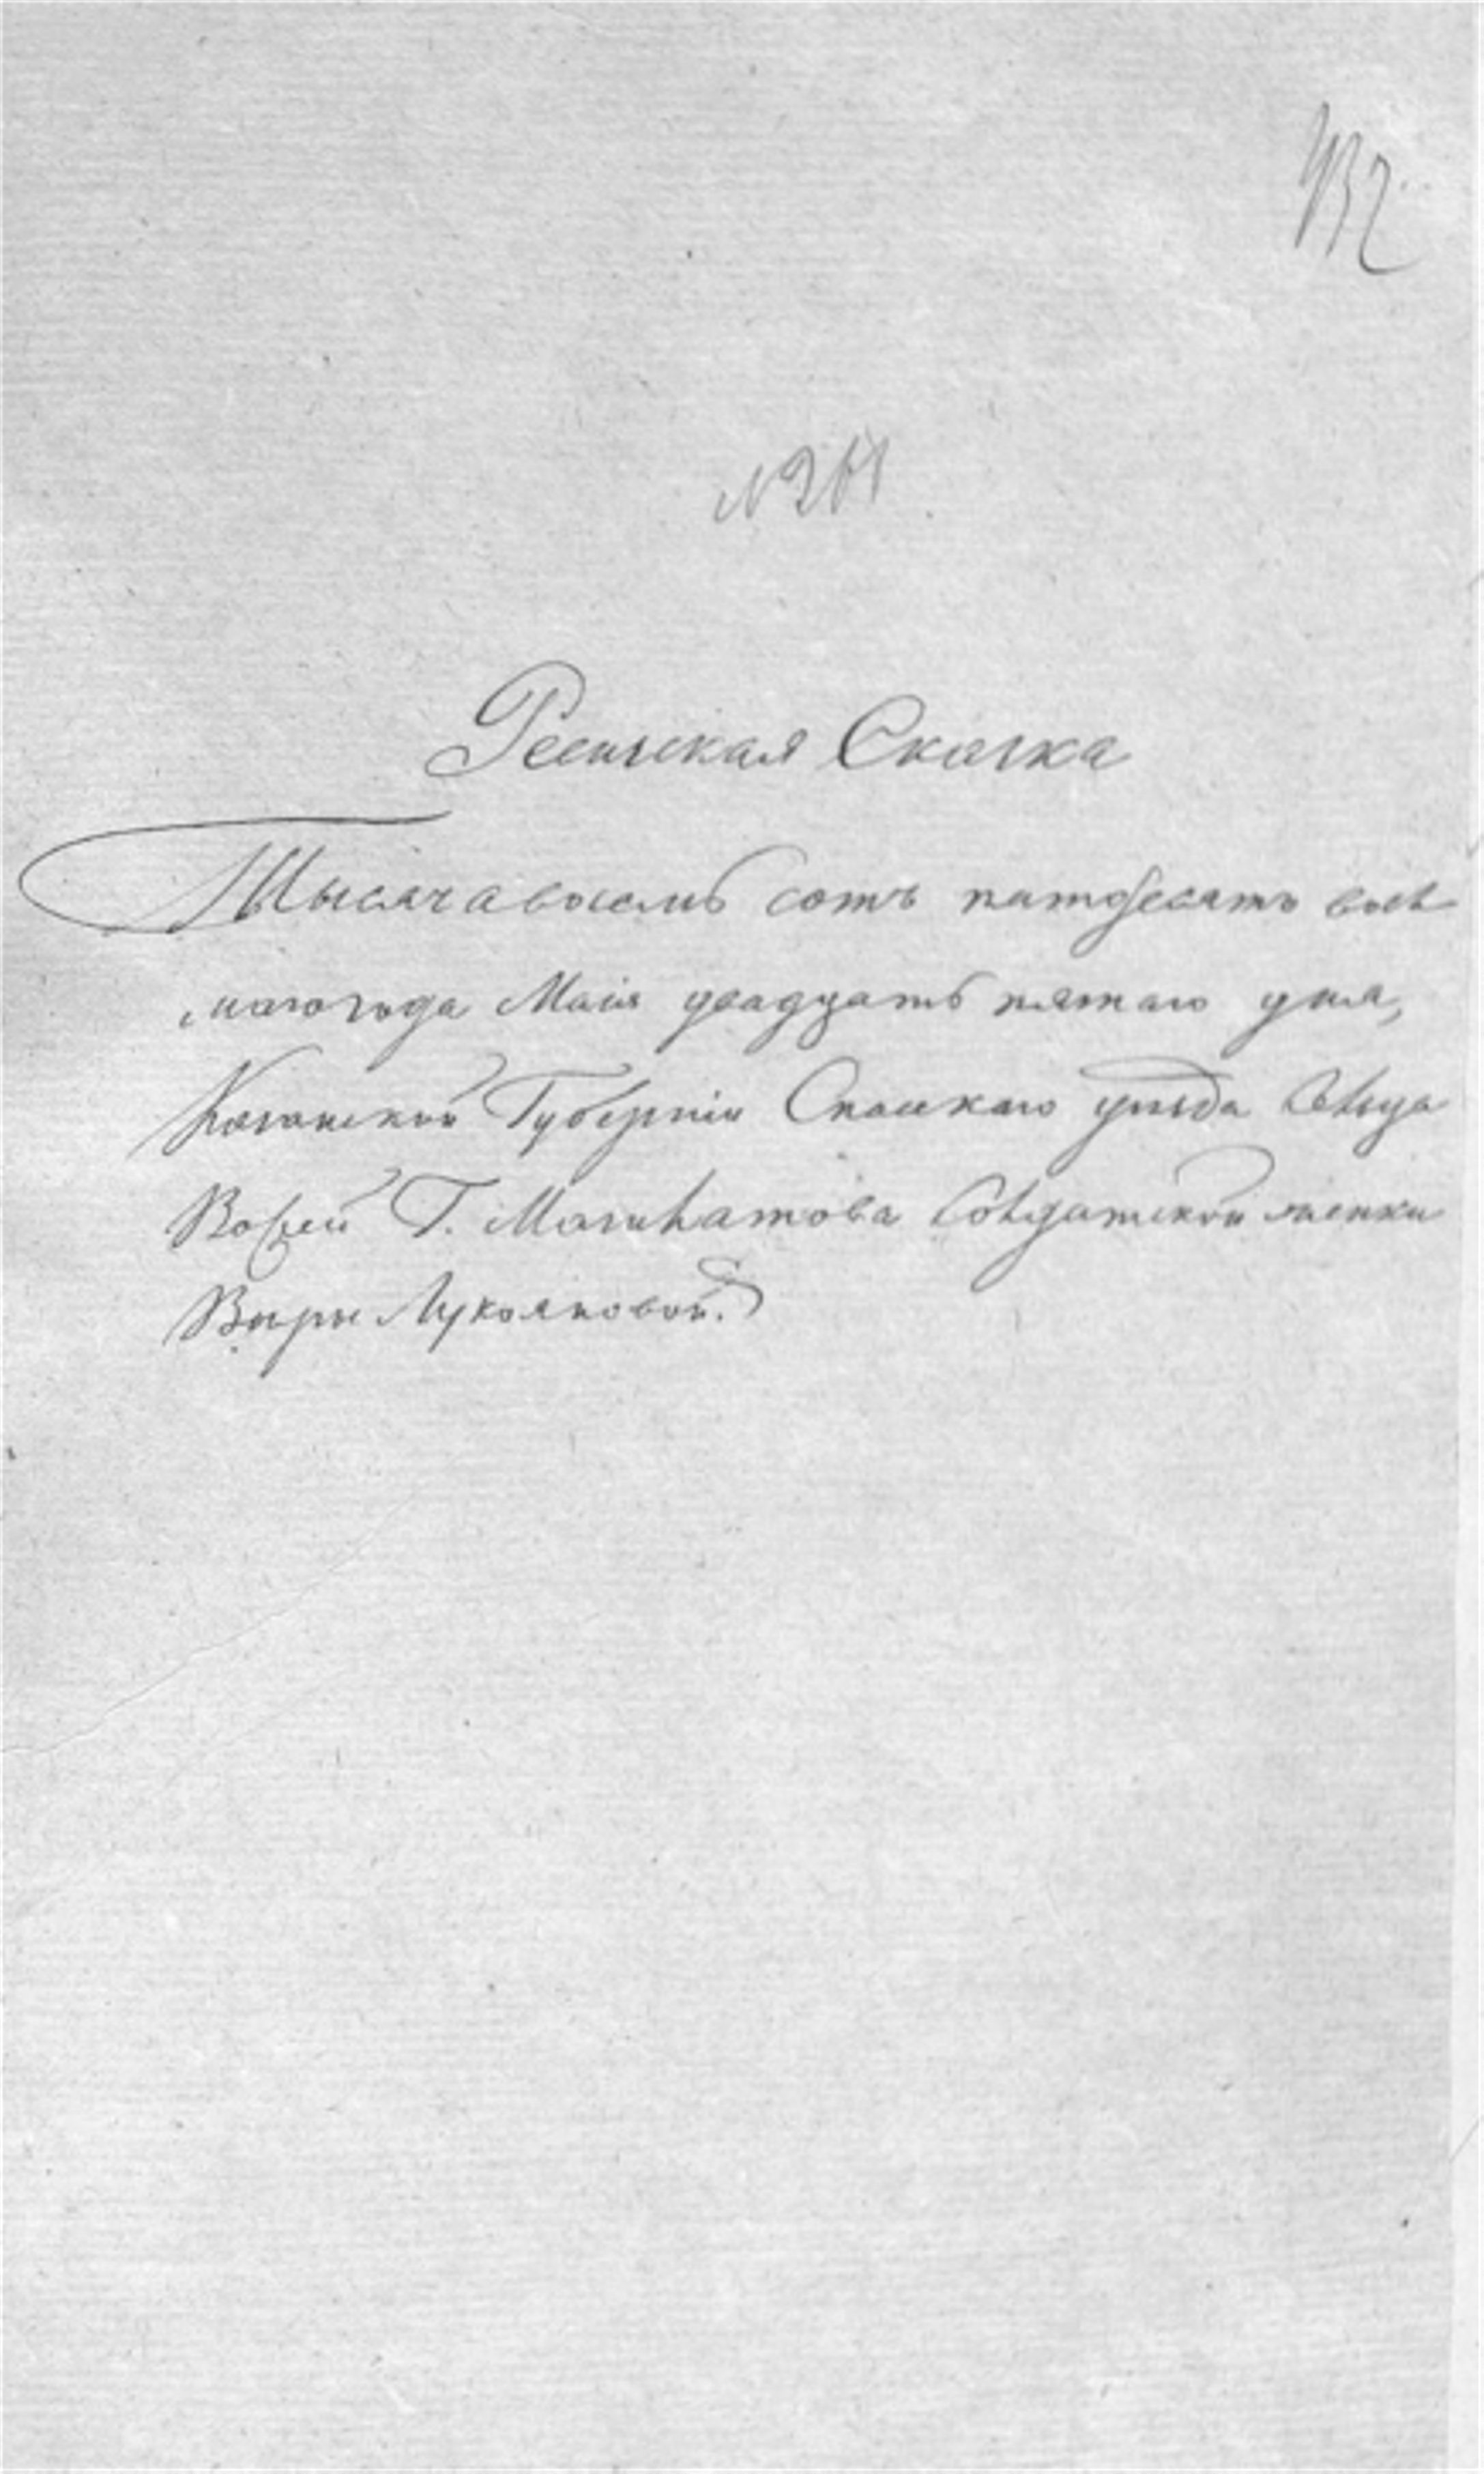 432
№ 261
Ревизская Сказка
Тысяча восемь сотъ пятдесятъ вось
маго года Маія двадцать пятаго дня,
Казанской Губерніи Спаскаго уѣзда Сельца
Г. солдатской жонки
Вѣры Лукояновой.